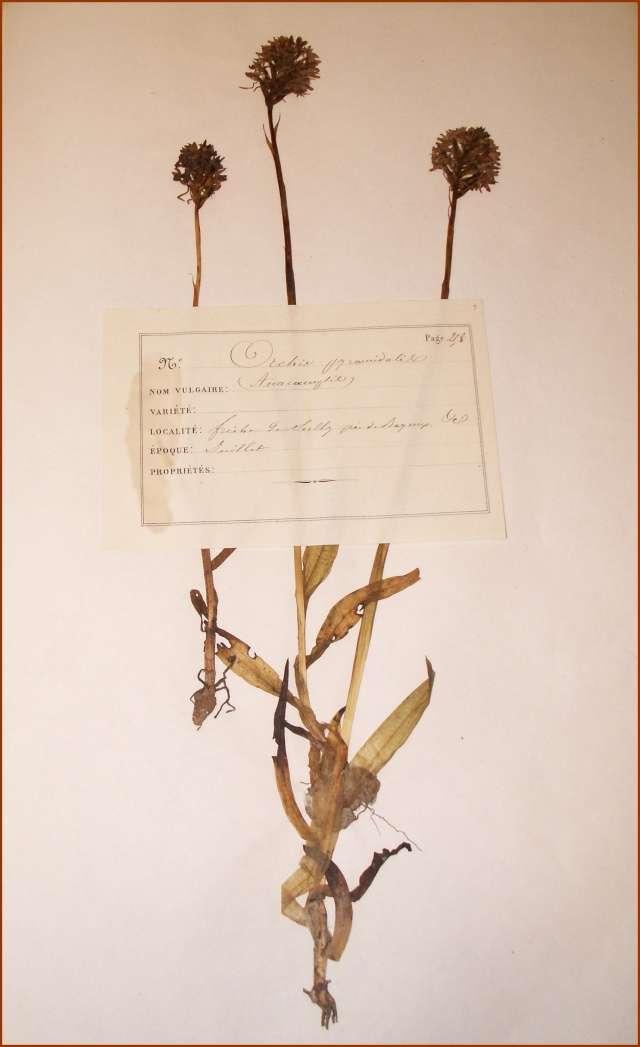 Page 248
N° Orchis pyramidalis
NOM VULGAIRE: (Anacamptis)
VARIÉTÉ:
LOCALITÉ: friche de Sully près de Bayeux
ÉPOQUE: Juillet
PROPRIÉTÉS: